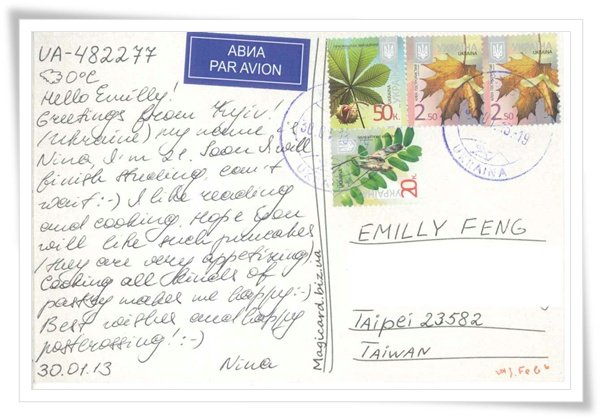 UA-482277
0°C
Hello Emilly!
Greetings from Kyiv!
(Ukraine) my name
Nina, I'm 21. Soon I will
finish studing, can't
wait :-) I like reading
and cooking. Hope you
will like such pancakes
(they are very appetizing).
Cooking all kinds of
pastry makes me happy :-)
Best wishes and happy
postcrossing! :-)
Nina
30.01.13
АВИА
PAR AVION
Magicard.biz.ua
50к.
УКРАЇНА
2.50
УКРАЇНА
2.50
УКРАЇНА
20к.
UKRAINA
EMILLY FENG
TAIPEI 23582
TAIWAN